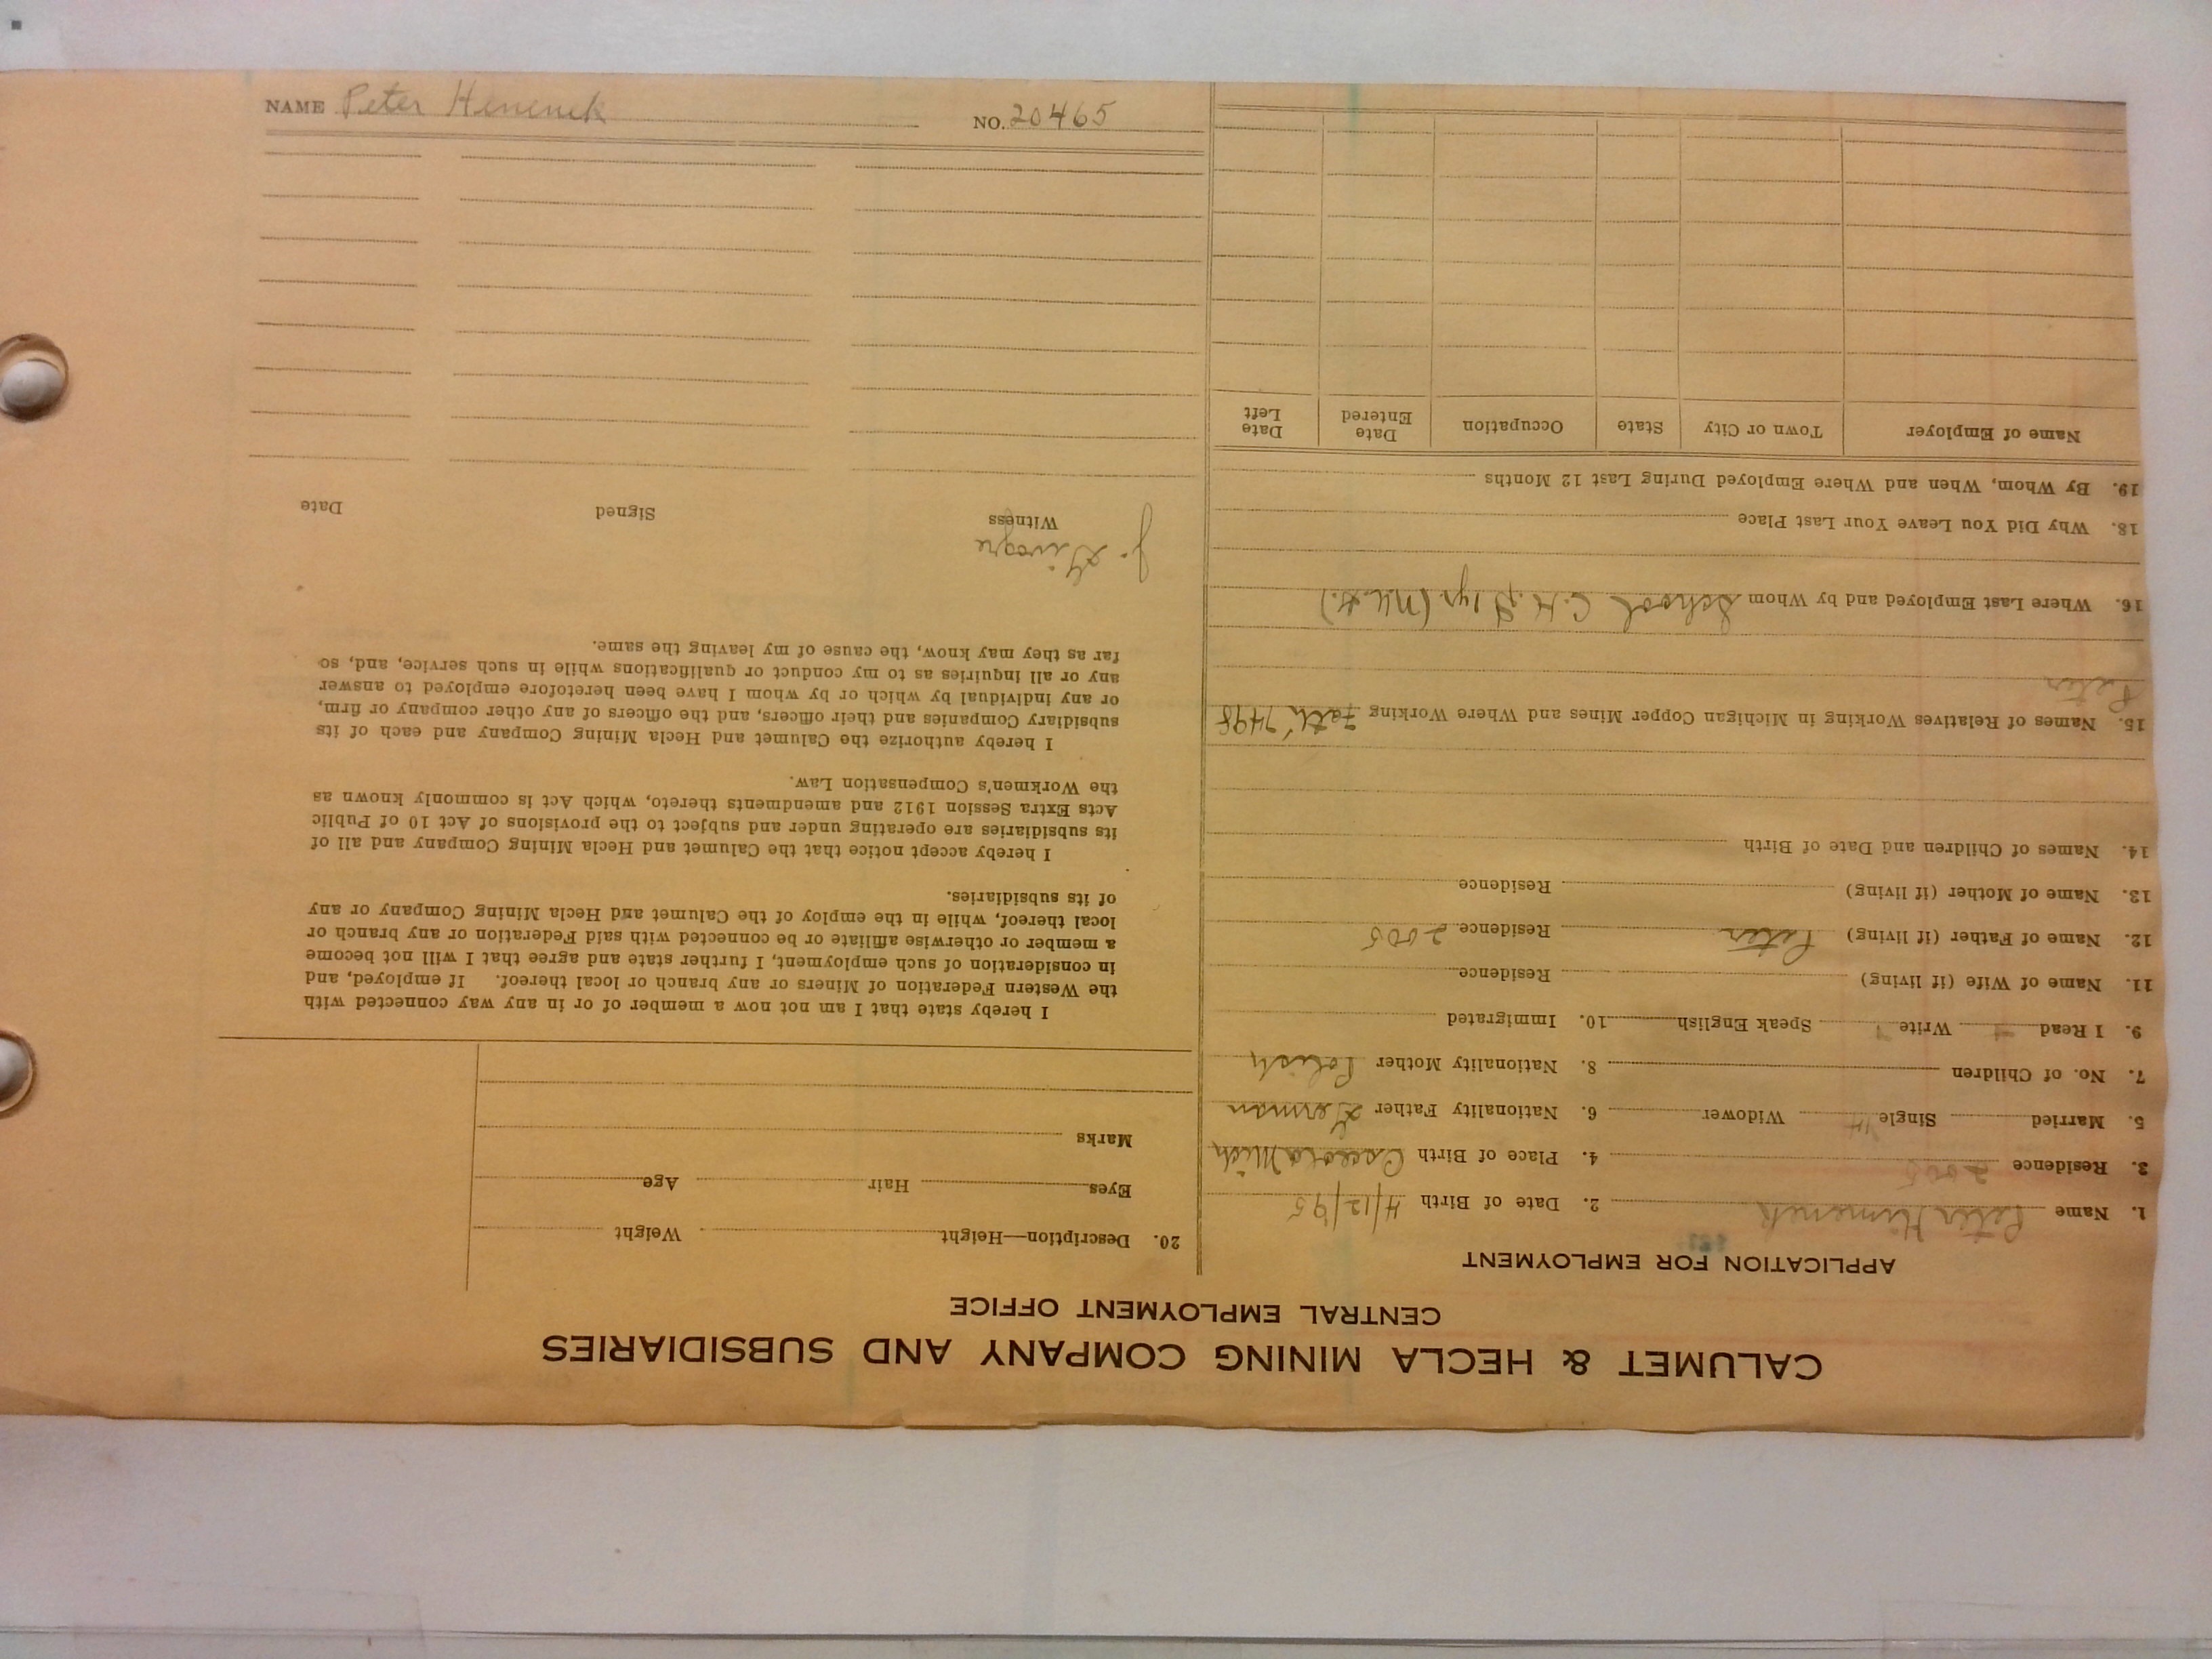 CALUMET & HECLA MINING COMPANY AND SUBSIDIARIES
CENTRAL EMPLOYMENT OFFICE
APPLICATION FOR EMPLOYMENT
1. Name Peter 2. Date of Birth 4/12/95
3. Residence 2005 4. Place of Birth Osceola Mich
5. Married Single Widower 6. Nationality Father German
7. No. of Children 8. Nationality Mother Polish
9. I Read Write Speak English 10. Immigrated
11. Name of Wife (if living) Residence
12. Name of Father (if living) Peter Residence 2005
13. Name of Mother (if living) Residence
14. Names of Children and Date of Birth
15. Names of Relatives Working in Michigan Copper Mines and Where Working Fath 7498
Peter
16. Where Last Employed and by Whom School C.H. 1 yr
18. Why Did You Leave Your Last Place
19. By Whom, When and Where Employed During Last 12 Months
Name of Employer Town or City State Occupation Date Entered Date Left
20. Description—Height Weight
Eyes Hair Age
Marks
I hereby state that I am not now a member of or in any way connected with
the Western Federation of Miners or any branch or local thereof. If employed, and
in consideration of such employment, I further state and agree that I will not become
a member or otherwise affiliate or be connected with said Federation or any branch or
local thereof, while in the employ of the Calumet and Hecla Mining Company or any
of its subsidiaries.
I hereby accept notice that the Calumet and Hecla Mining Company and all of
its subsidiaries are operating under and subject to the provisions of Act 10 of Public
Acts Extra Session 1912 and amendments thereto, which Act is commonly known as
the Workmen's Compensation Law.
I hereby authorize the Calumet and Hecla Mining Company and each of its
subsidiary Companies and their officers, and the officers of any other company or firm,
or any individual by which or by whom I have been heretofore employed to answer
any or all inquiries as to my conduct or qualifications while in such service, and, so
far as they may know, the cause of my leaving the same.
J.
Witness Signed Date
NAME Peter NO. 20465